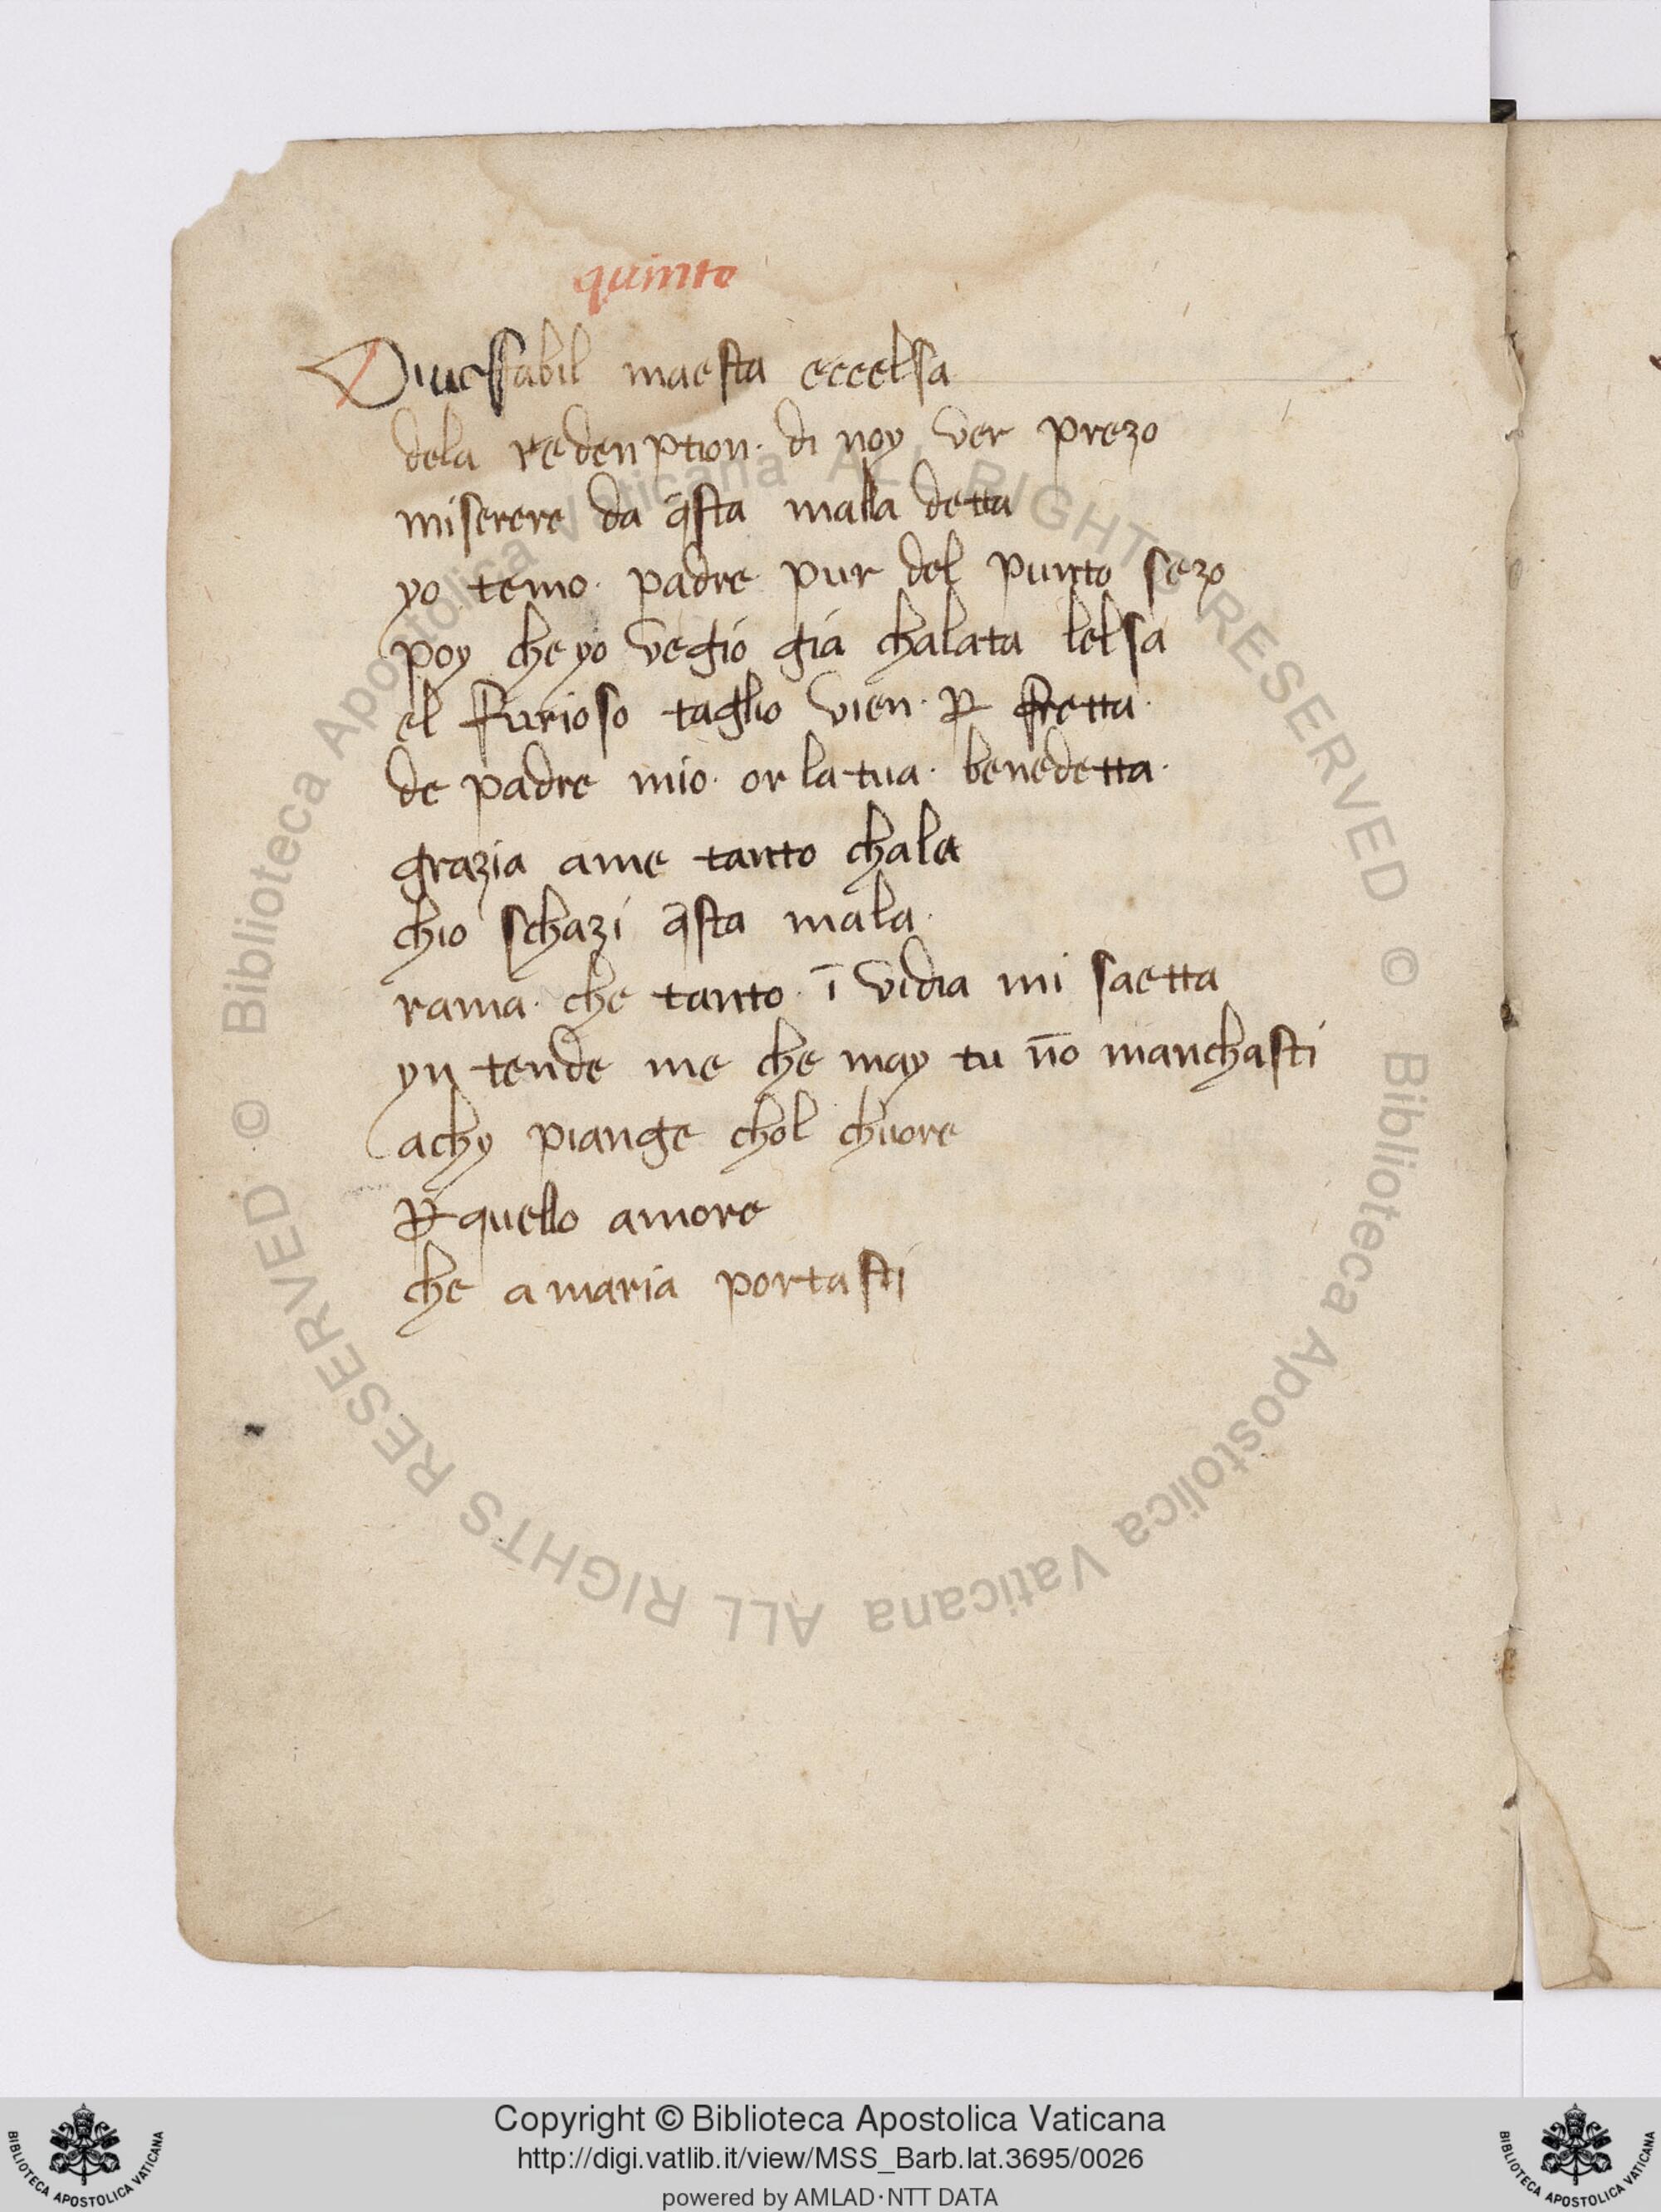 quinto
maesta eccelsa
dela redenption· di noy ver prezo
miserere da q̄sta malla detta
yo temo· padre pur del punto sezo
poy che yo vegio gia chalata lelsa
el furioso taglio vien· ꝑ fretta·
de padre mio· or la tua· benedetta·
grazia ame tanto chala
chio schazi q̄sta mala·
rama· che tanto· ī vidia mi saetta
yn tende me che may tu n̄o manchasti
achy piange chol chuore
ꝑ quello amore
che a maria portasti
© Biblioteca Apostolica Vaticana ALL RIGHTS RESERVED © Biblioteca Apostolica Vaticana ALL RIGHTS RESERVED
Copyright © Biblioteca Apostolica Vaticana
http://digi.vatlib.it/view/MSS_Barb.lat.3695/0026
powered by AMLAD·NTT DATA
BIBLIOTECA APOSTOLICA VATICANA
BIBLIOTECA APOSTOLICA VATICANA